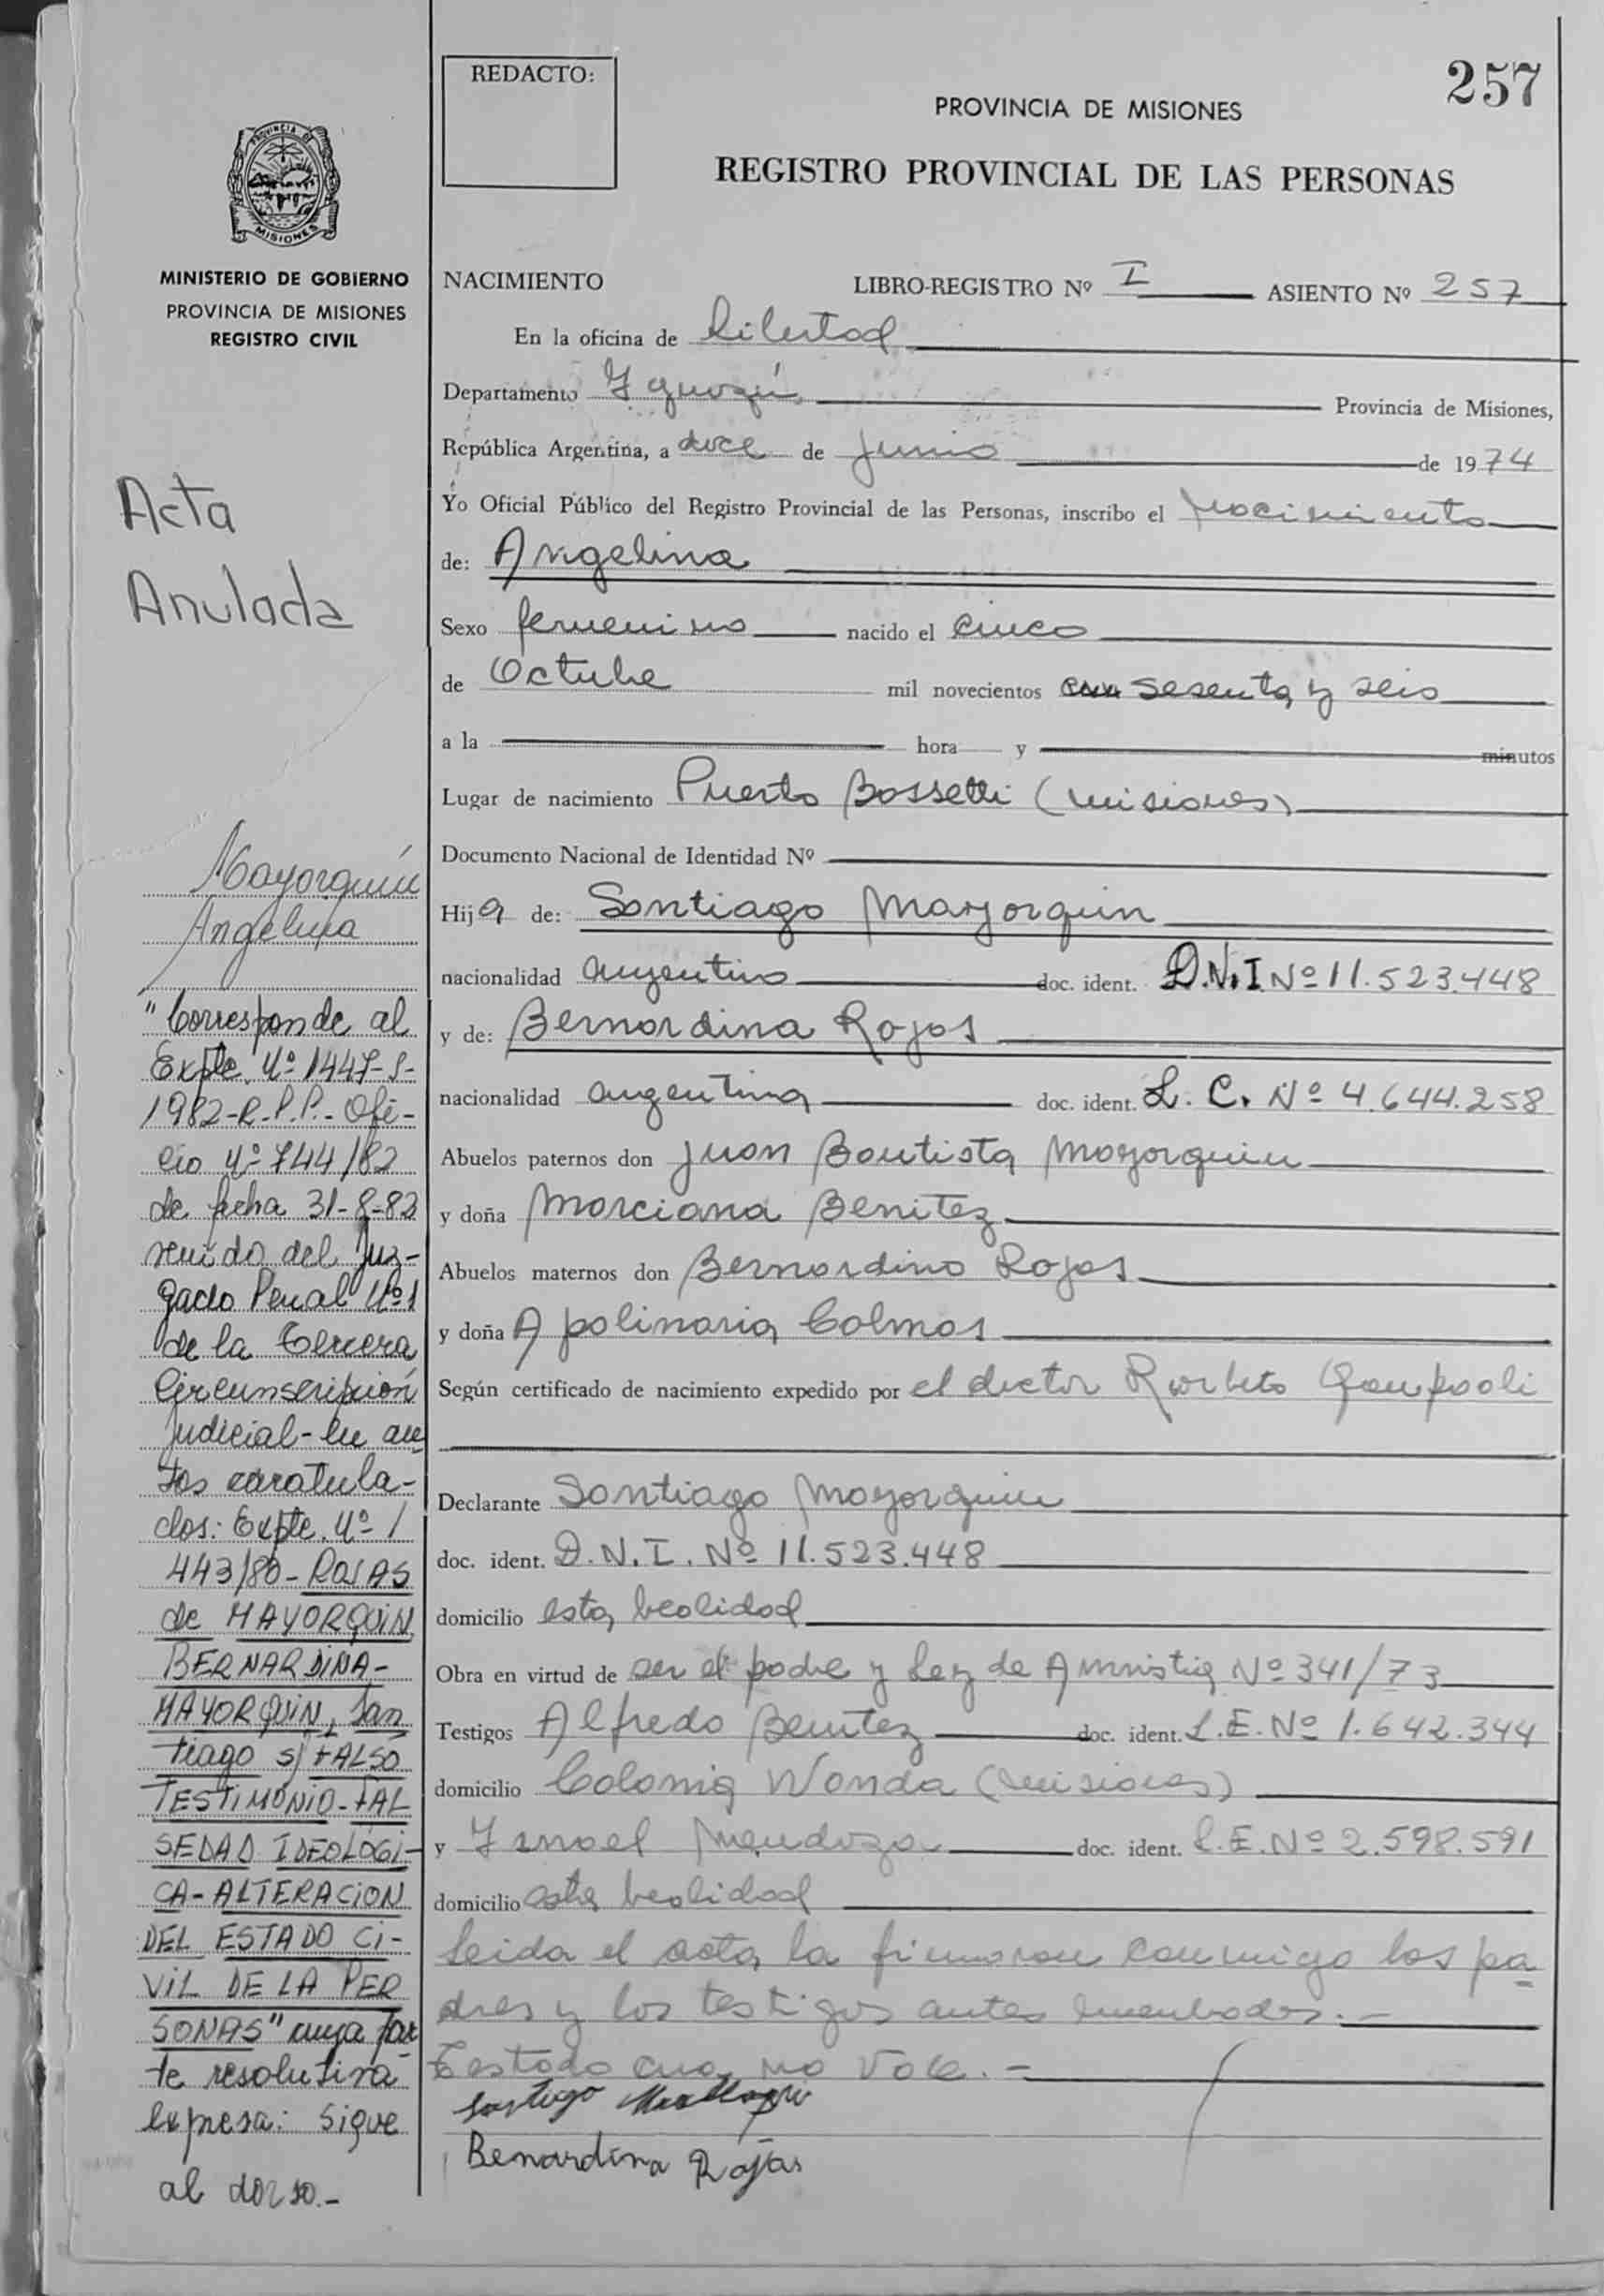 REDACTO:
257
PROVINCIA DE MISIONES
REGISTRO PROVINCIAL DE LAS PERSONAS
PROVINCIA DE
MISIONES
MINISTERIO DE GOBIERNO
PROVINCIA DE MISIONES
REGISTRO CIVIL
Acta
Anulada
Mayorquin
Angelina
"Corresponde al
Expte. Nº 1447-S-
1982-R.P.P.- Ofi-
cio Nº 744/82
de fecha 31-8-82
venido del Juz-
gado Penal Nº1
de la Tercera
Circunscripción
Judicial- en au
tos caratula-
dos: Expte. Nº 1
443/80- ROJAS
de MAYORQUIN
BERNARDINA-
MAYORQUIN, San
tiago s/ FALSO
TESTIMONIO-FAL
SEDAD IDEOLOGI-
CA-ALTERACION
DEL ESTADO CI-
VIL DE LA PER
SONAS" cuya par
te resolutiva
expresa: sigue
al dorso.-
NACIMIENTO LIBRO-REGISTRO Nº I ASIENTO Nº 257
En la oficina de Libertad
Departamento Iguazú Provincia de Misiones,
República Argentina, a doce de Junio de 1974
Yo Oficial Público del Registro Provincial de las Personas, inscribo el nacimiento
de: Angelina
Sexo femenino nacido el cinco
de Octubre mil novecientos sesenta y seis
a la hora y minutos
Lugar de nacimiento Puerto Bossetti (Misiones)
Documento Nacional de Identidad Nº
Hija de: Santiago Mayorquin
nacionalidad argentino doc. ident. D.N.I Nº 11.523.448
y de: Bernardina Rojas
nacionalidad argentina doc. ident. L. C. Nº 4.644.258
Abuelos paternos don Juan Bautista Mayorquin
y doña Marciana Benitez
Abuelos maternos don Bernardino Rojas
y doña Apolinaria Colmas
Según certificado de nacimiento expedido por el doctor
Declarante Santiago Mayorquin
doc. ident. D.N.I. Nº 11.523.448
domicilio esta localidad
Obra en virtud de ser el padre y Ley de Amnistia Nº 341/73
Testigos Alfredo Benitez doc. ident. L.E. Nº 1.642.344
domicilio Colonia Wanda (Misiones)
y Ismael Mendoza doc. ident. L.E. Nº 2.598.591
domicilio esta localidad
Leida el acta, la firmaron conmigo los pa
dres y los testigos antes nombrados.-
Testado no vale.-
Bernardina Rojas